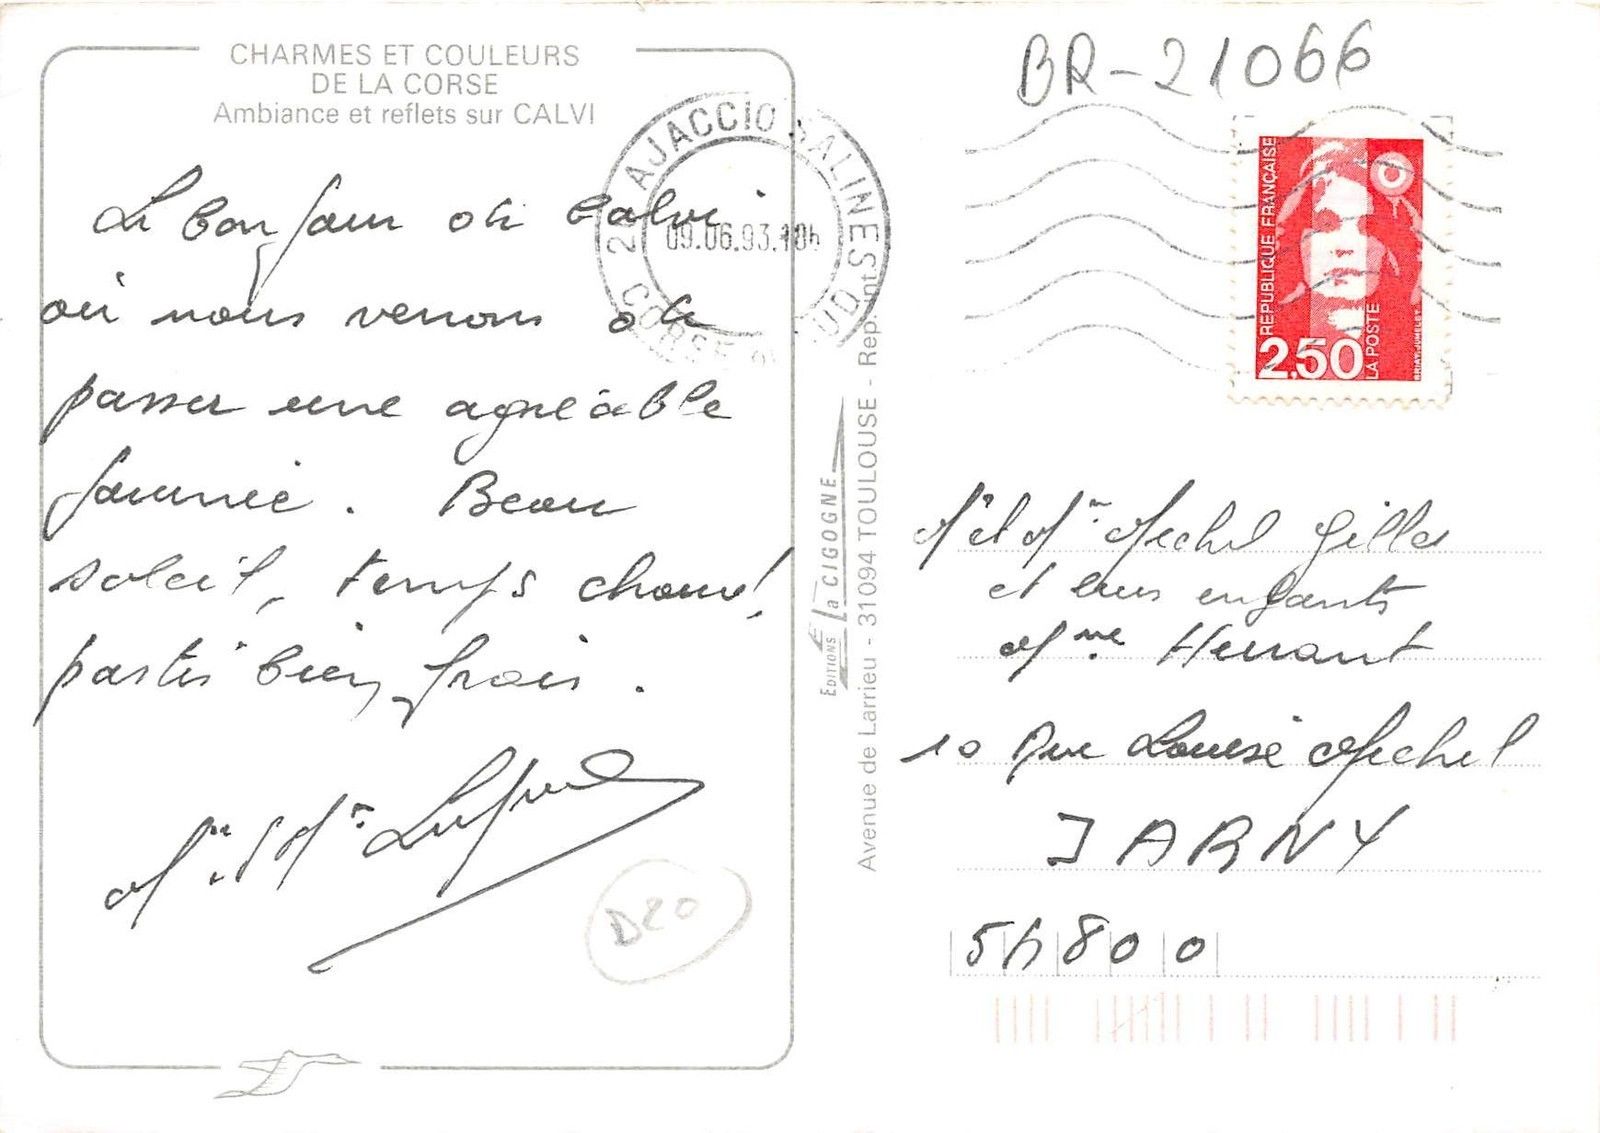 CHARMES ET COULEURS
DE LA CORSE
Ambiance et reflets sur CALVI
Le bonjour de Calvi
où nous venons de
passer une agréable
journée. Beau
soleil, temps chaud,
partis bien frais.
Mr et Mme
D20
20 AJACCIO SALINES
09.06.93.18h
CORSE DU SUD
EDITIONS La CIGOGNE
Avenue de Larrieu - 31094 TOULOUSE - Rep. int.
BR-21066
REPUBLIQUE FRANÇAISE
2,50
LA POSTE
BRIAT-JUMELET
Mr et Mme Michel Gilles
et leurs enfants
Mme
10 Rue Louise Michel
JARNY
54800